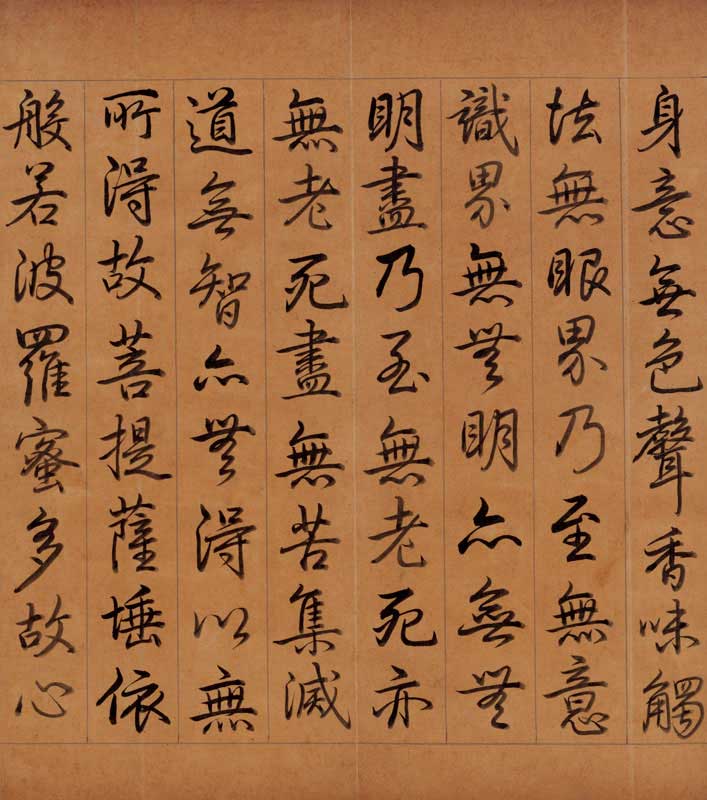 身意無色聲香味觸
法無眼界乃至無意
識界無無明亦無無
明盡乃至無老死亦
無老死盡無苦集滅
道無智亦無得以無
所得故菩提薩埵依
般若波羅蜜多故心